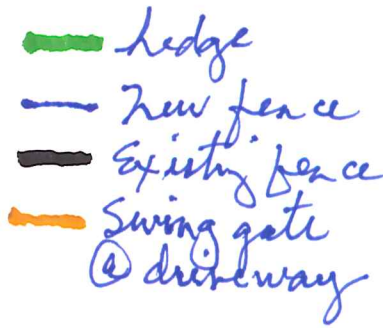 hedge
New fence
Existing fence
Swing gate
@ driveway